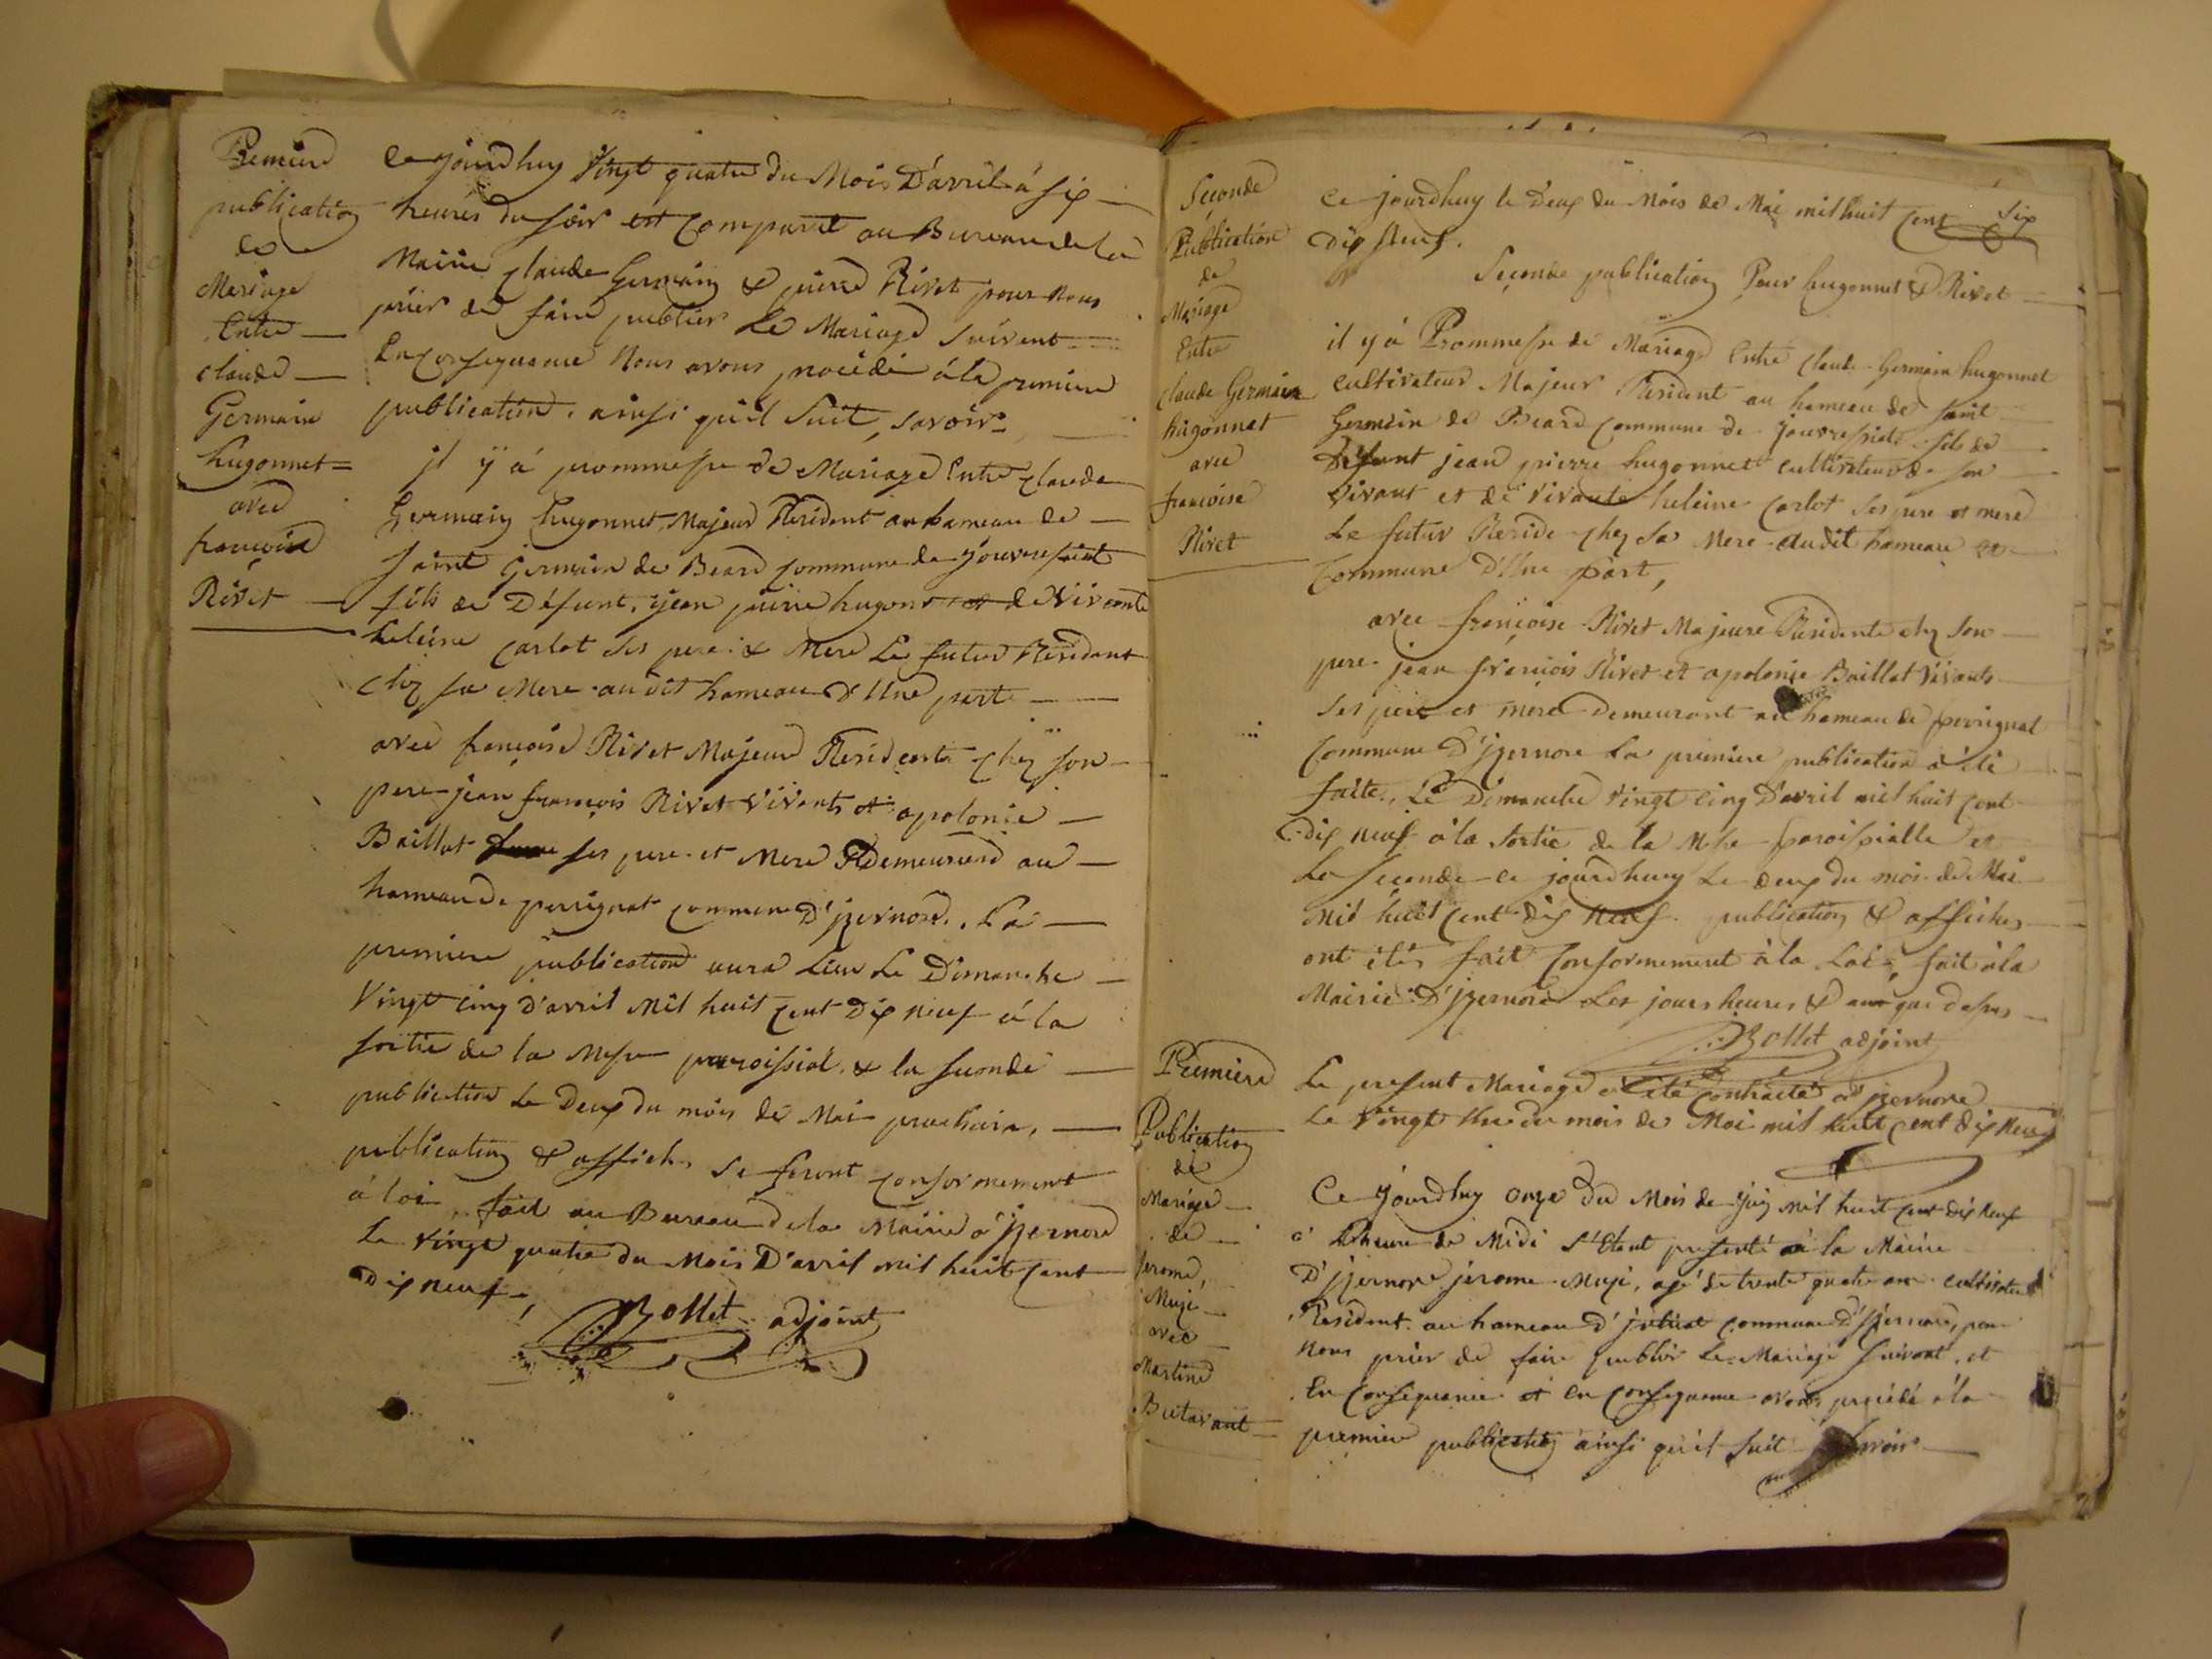 Premiere
publication
de
Mariage
Entre
claude
Germain
hugonnet
avec
francoise
Rivet
Ce jourdhuy Vingt quatre du Mois D'avril à six
heures du soir est Comparut au Bureau de la
Mairie Claude Germain & pierre Rivet pour Nous
prier de faire publier Le Mariage Suivent
En Consequance Nous avons procédé à la premiere
publication, ainsi quil Suit, savoir
il ÿ à prommesse de Mariage Entre Claude
Germain hugonnet Majeur Resident au hameau de
Saint Germain de Beard Commune de
fils de Défunt, jean pierre hugonnet de Vivante
heleine Carlot ses pere & Mere Le futur Residant
Chez sa Mere au dit hameau D'Une part
avec françoise Rivet Majeure Residente Chez son
pere jean françois Rivet Vivants et apolonie
Baillat ses pere et Mere Demeurent au
hameau de perrignat commune D'jzernore. La
premiere publication aura Lieu Le Dimanche
Vingt cinq d'avril Mil huit Cent Dix neuf à la
sortie de la Messe paroissial & la seconde
publication Le Deux du mois de Mai prochain,
publication & affiches Se feront Conformement
à loi, fait au Bureau de la Mairie d'jzernore
Le vingt quatre du Mois D'avril mil huit Cent
dix neuf,
Bollet adjoint
Seconde
Publication
de
Mariage
Entre
claude Germain
hugonnet
avec
francoise
Rivet
Ce jourdhuy le Deux du Mois de Mai mil huit Cent Six
Dix Neuf.
Seconde publication Pour hugonnet & Rivet
il y à Prommesse de Mariage Entre Claude Germain hugonnet
cultivateur Majeur Resident au hameau de saint
Germain de Beard Commune de fils de
Defunt jean pierre hugonnet cultivateur de son
vivant et de vivante heleine Carlot ses pere et mere
Le futur Reside Chez sa Mere audit hameau et
Commune D'Une part,
avec françoise Rivet Majeure Residente chez son
pere jean françois Rivet et apolonie Baillat Vivants
ses pere et mere Demeurant au hameau de perrignat
Commune D'jzernore La premiere publication à été
faite, Le Dimanche Vingt cinq D'avril mil huit Cent
dix neuf à la sortie de la Messe paroissialle et
La Seconde ce jourdhuy Le deux du mois de Mai
mil huit Cent dix neuf. publication & affiches
ont étés fait Conformement à la Loi, fait à la
Mairie D'jzernore Les jours heures & an que dessus
Bollet adjoint
Le present Mariage à été Contracté à jzernore
Le Vingt du mois de Mai mil huit Cent dix Neuf
Premiere
Publication
de
Mariage
de
Jerome,
Muji
avec
Martine
Butavant
Ce jourdhuy onze du Mois de Mil huit Cent dix Neuf
à L'heure de Midi S'Etant presenté à la Mairie
D'jzernore jerome Muji, agé de trente quatre ans cultivateur
Resident au hameau d' Commune D'jzernore, pour
Nous prier de faire publier Le Mariage suivant, et
En Consequance et en Consequance avons procédé à la
premiere publication ainsi qu'il suit savoir